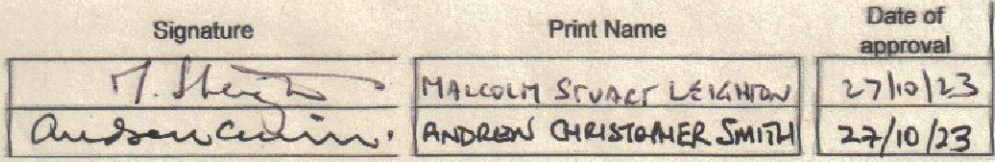 Signature Print Name Date of approval
M. S. Leighton MALCOLM STUART LEIGHTON 27/10/23
ANDREW CHRISTOPHER SMITH 27/10/23